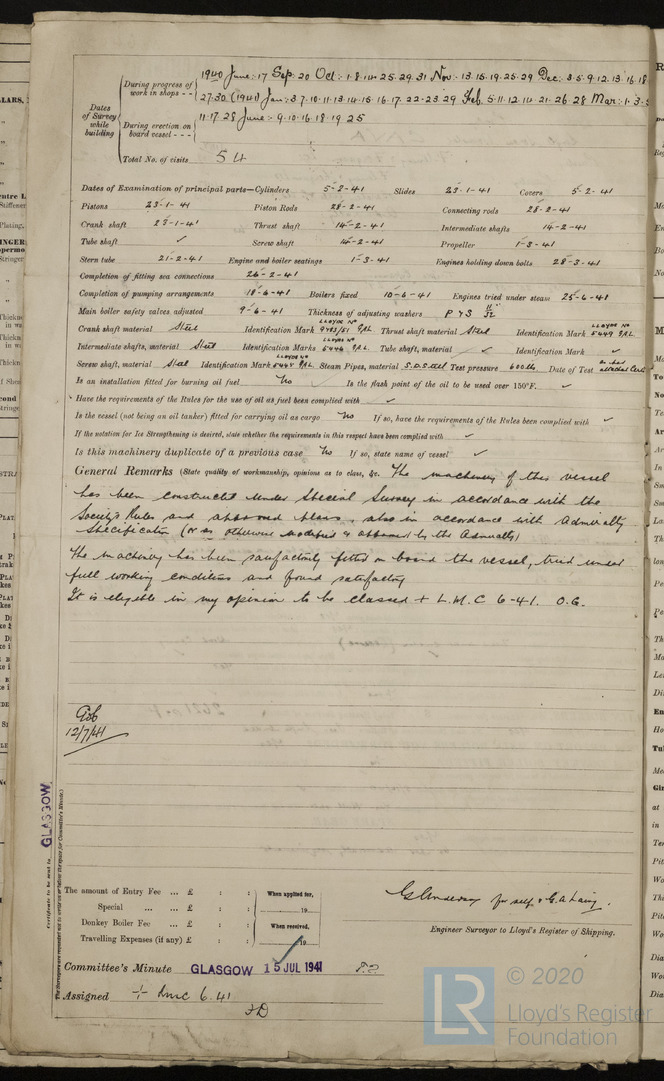 During progress of work in shops - - 1940 June: 17 Sep. 20 Oct: 1.8.14.25.29.31 Nov: 13.15.19.25.29 Dec: 3.5.9.12.13.16.18
27.30 (1941) Jan: 3.7.10.11.13.14.15.16.17.22.23.29 Feb. 5.11.12.14.21.26.28 Mar: 1.3.
Dates of Survey while building
During erection on board vessel - - - 11.17.28 June: 9.10.16.18.19.25
Total No. of visits 54
Dates of Examination of principal parts—Cylinders 5-2-41 Slides 23-1-41 Covers 5-2-41
Pistons 23-1-41 Piston Rods 28-2-41 Connecting rods 28-2-41
Crank shaft 23-1-41 Thrust shaft 14-2-41 Intermediate shafts 14-2-41
Tube shaft ✓ Screw shaft 14-2-41 Propeller 1-3-41
Stern tube 21-2-41 Engine and boiler seatings 1-3-41 Engines holding down bolts 28-3-41
Completion of fitting sea connections 26-2-41
Completion of pumping arrangements 18-6-41 Boilers fixed 10-6-41 Engines tried under steam 25-6-41
Main boiler safety valves adjusted 9-6-41 Thickness of adjusting washers P & S 11/32
Crank shaft material Steel Identification Mark LLOYDS No Thrust shaft material Steel Identification Mark LLOYDS No 5449
Intermediate shafts, material Steel Identification Marks LLOYDS No 5444 Tube shaft, material ✓ Identification Mark ✓
Screw shaft, material Steel Identification Mark LLOYDS No 5445 Steam Pipes, material S.D. Steel Test pressure 600 lbs Date of Test attached Cert
Is an installation fitted for burning oil fuel No Is the flash point of the oil to be used over 150°F. ✓
Have the requirements of the Rules for the use of oil as fuel been complied with ✓
Is the vessel (not being an oil tanker) fitted for carrying oil as cargo No If so, have the requirements of the Rules been complied with ✓
If the notation for Ice Strengthening is desired, state whether the requirements in this respect have been complied with ✓
Is this machinery duplicate of a previous case No If so, state name of vessel ✓
General Remarks (State quality of workmanship, opinions as to class, &c. The machinery of this vessel
has been constructed under Special Survey in accordance with the
Society's Rules and approved plans, also in accordance with Admiralty
Specification (or as otherwise modified & approved by the Admiralty)
The machinery has been satisfactorily fitted on board the vessel, tried under
full working conditions and found satisfactory
It is eligible in my opinion to be classed + L.M.C 6-41. O.G.
12/7/41
GLASGOW.
Certificate to be sent to
The amount of Entry Fee ... £ : : When applied for,
Special ... ... £ : : 19
Donkey Boiler Fee ... £ : : When received,
Travelling Expenses (if any) £ : : 19
for self & G.A. Laing.
Engineer Surveyor to Lloyd's Register of Shipping.
Committee's Minute GLASGOW 15 JUL 1941
Assigned + LMC 6.41
© 2020
LR Lloyd's Register
Foundation